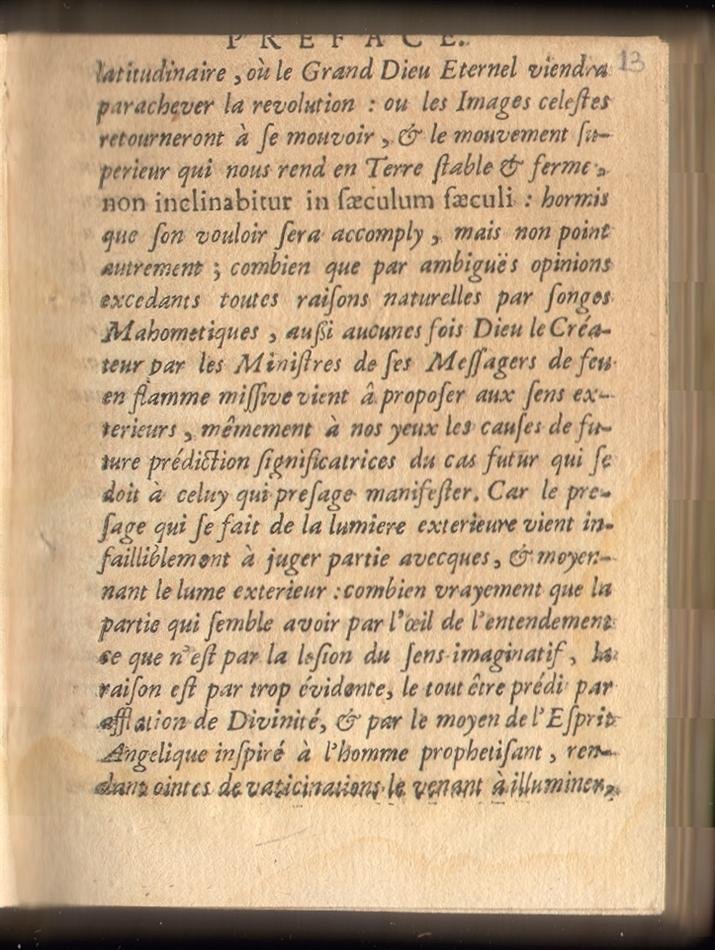 PREFACE.
13
latitudinaire, où le Grand Dieu Eternel viendra
parachever la revolution : ou les Images celeſtes
retourneront à ſe mouvoir, & le mouvement ſu-
perieur qui nous rend en Terre ſtable & ferme,
non inclinabitur in ſæculum ſæculi : hormis
que ſon vouloir ſera accomply, mais non point
autrement ; combien que par ambiguës opinions
excedants toutes raiſons naturelles par ſonges
Mahometiques, außi aucunes fois Dieu le Créa-
teur par les Miniſtres de ſes Meſſagers de feu
en flamme miſſive vient â propoſer aux ſens ex-
terieurs, mêmement à nos yeux les cauſes de fu-
ture prédiction ſignificatrices du cas futur qui ſe
doit à celuy qui preſage manifeſter. Car le pre-
ſage qui ſe fait de la lumiere exterieure vient in-
failliblement à juger partie avecques, & moyen-
nant le lume exterieur : combien vrayement que la
partie qui ſemble avoir par l'œil de l'entendement
ce que n'eſt par la leſion du ſens imaginatif, la
raiſon eſt par trop évidente, le tout être prédi par
afflation de Divinité, & par le moyen de l'Eſprit
Angelique inſpiré à l'homme prophetiſant, ren-
dant ointes de vaticinations le venant à illuminer,